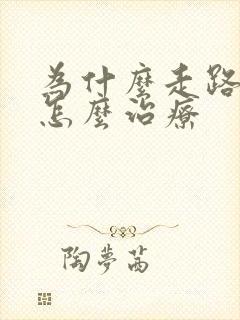 為什麼走路
怎麼治療
陶夢茜